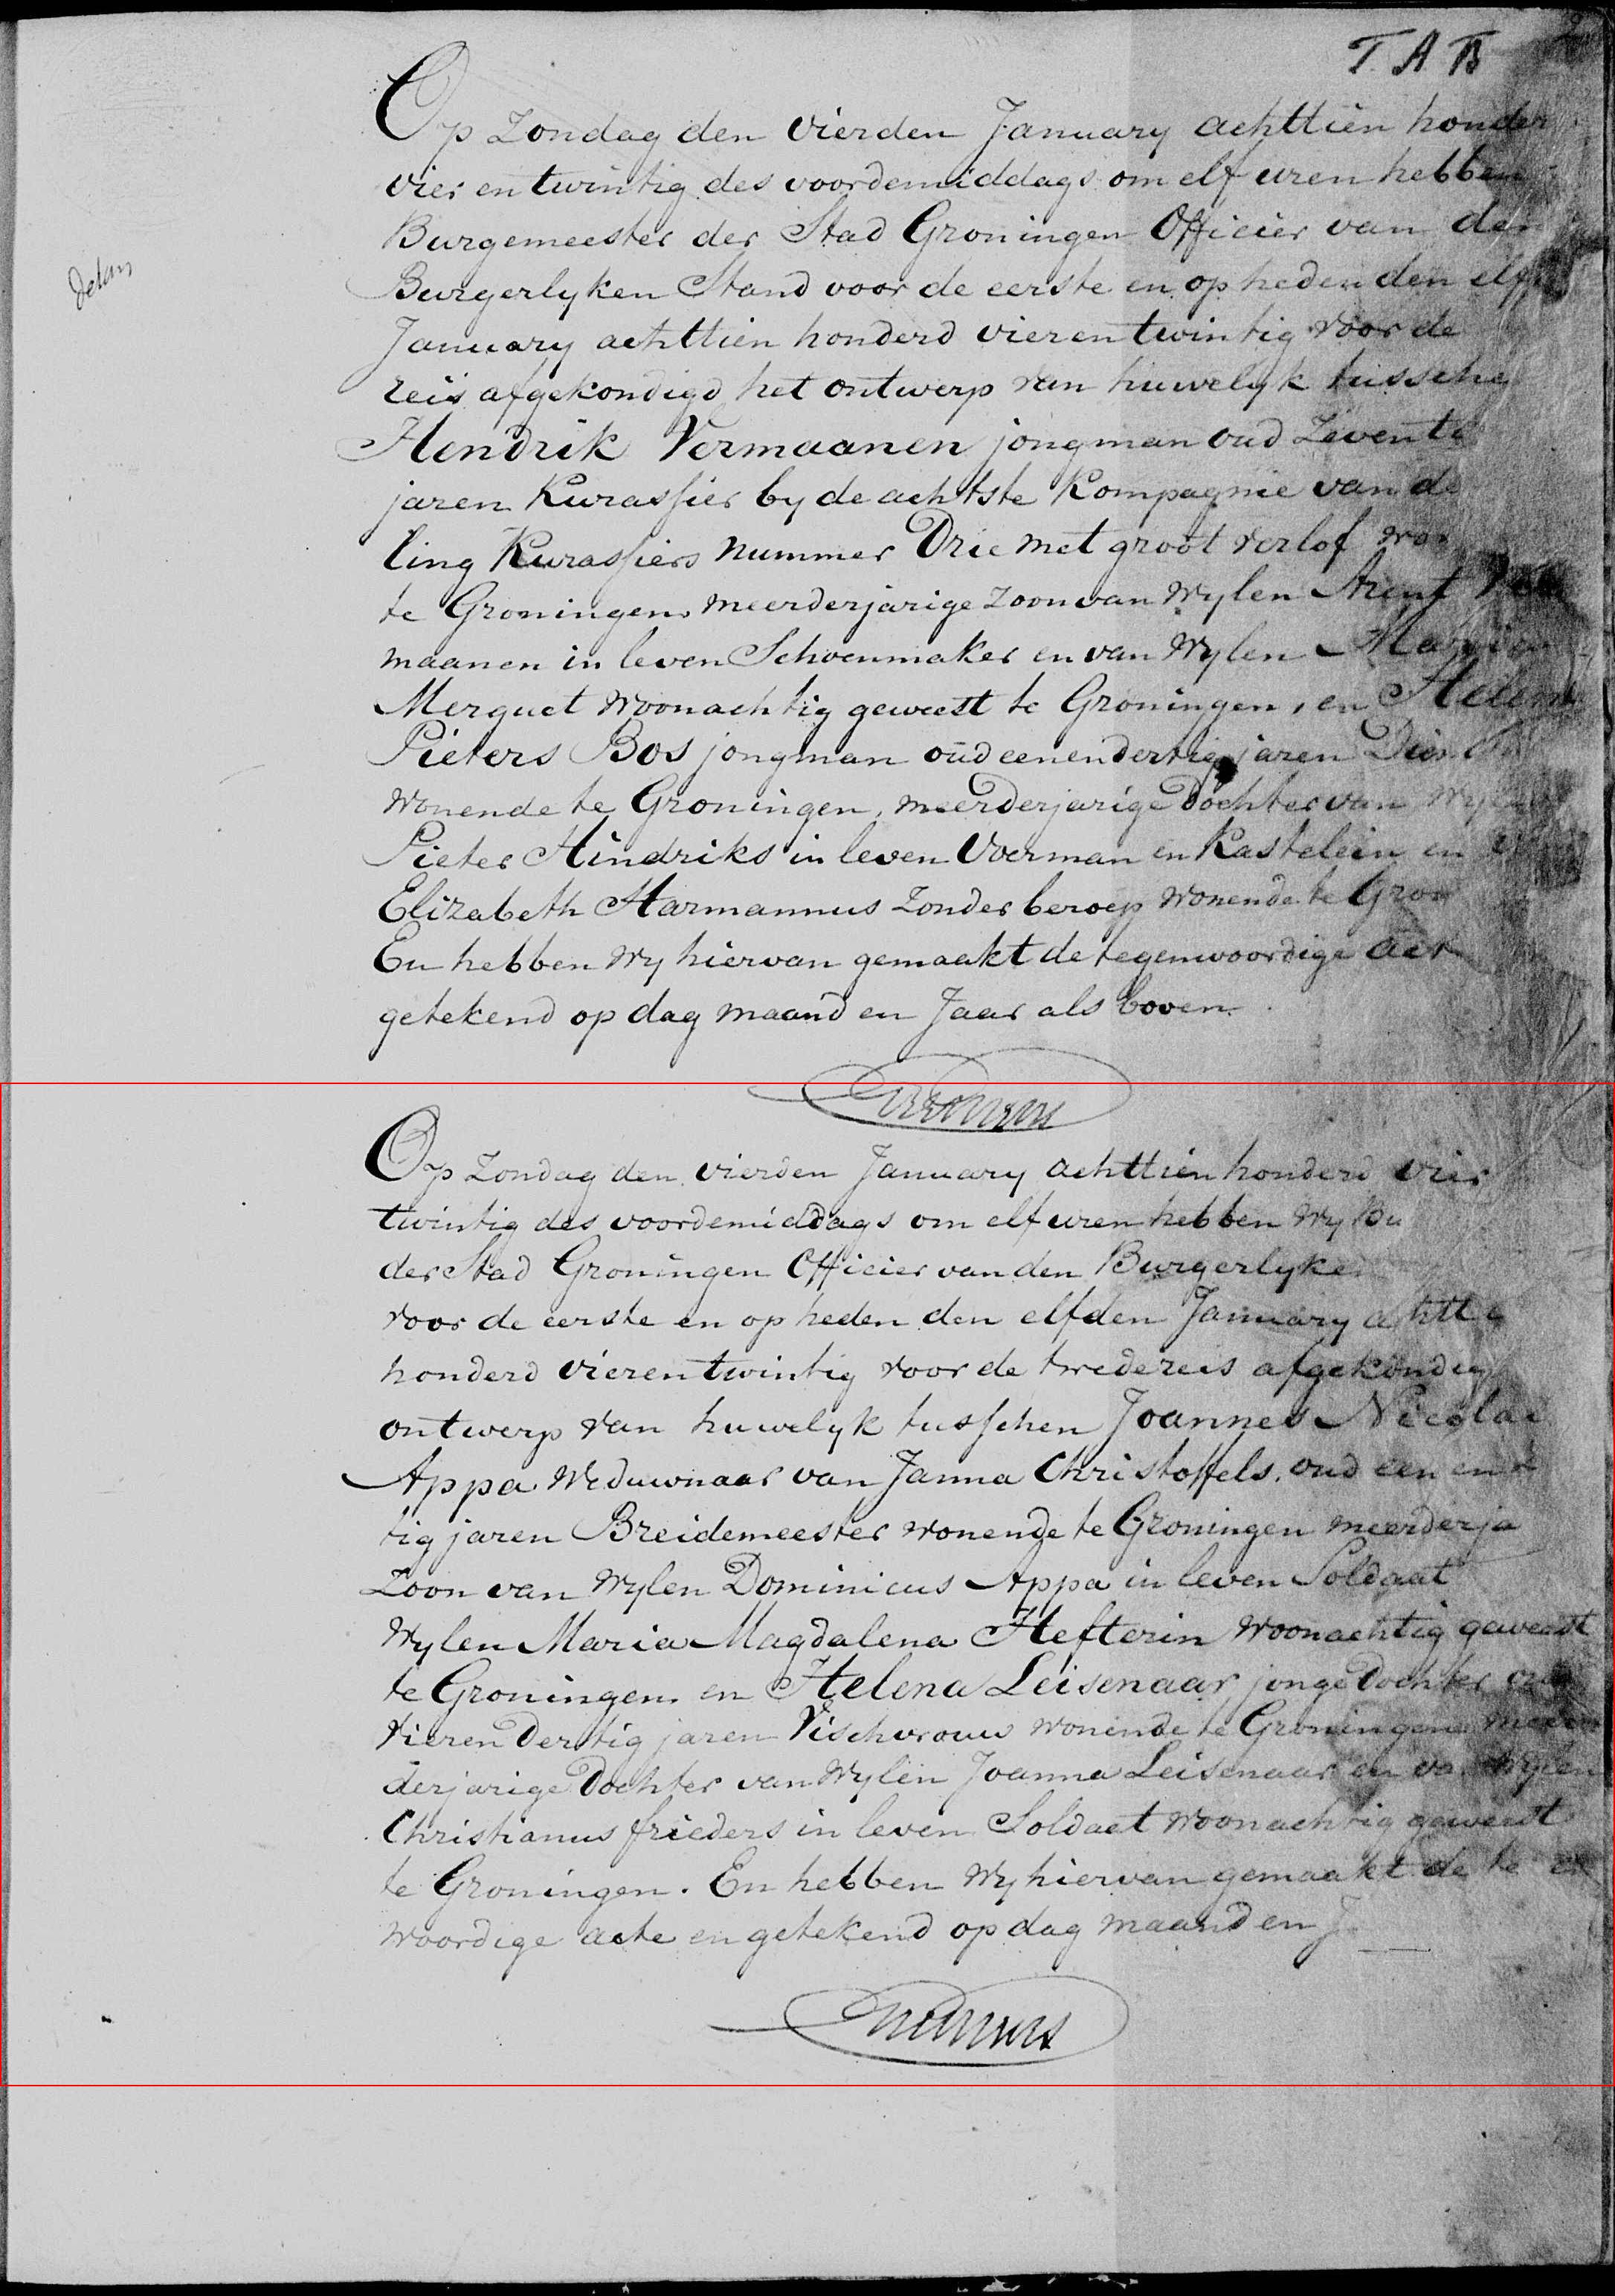 T. A B
Op Zondag den vierden January achttien honder
vier en twintig des voordemiddags om elf uren hebben
Burgemeester der Stad Groningen Officier van den
Burgerlyken Stand voor de eerste en op heden den elf
January achttien honderd vier en twintig voor de
reis afgekondigd het ontwerp van huwelyk tussche
Hendrik Vermaanen jongman oud Zevent
jaren Kurassier by de achtste Kompagnie van de
ling Kurassiers nummer Drie met groot verlof wo
te Groningen meerderjarige Zoon van Wylen Arent
maanen in leven Schoenmaker en van Wylen
Merguet Woonachtig geweest te Groningen, en Helen
Pieters Bos jongman oud eenendertig jaren Dien
Wonende te Groningen, meerderjarige Dochter van Wyl
Pieter Hindriks in leven Voerman en Kastelein en
Elizabeth Harmannus Zonder beroep Wonende te Gron
En hebben Wy hiervan gemaakt de tegenwoordige act
getekend op dag maand en Jaar als boven
Op Zondag den vierden January achttien honderd vier
twintig des voordemiddags om elf uren hebben Wy Bu
der Stad Groningen Officier van den Burgerlyken
voor de eerste en op heden den elfden January achtt
honderd vierentwintig voor de twede reis afgekondig
ontwerp van huwelyk tusschen Joannes Nicolai
Appa Weduwnaar van Janna Christoffels, oud een en
tig jaren Breidemeester wonende te Groningen meerderja
Zoon van Wylen Dominicus Appa in leven Soldaat
Wylen Maria Magdalena Hefterin Woonachtig geweest
te Groningen en Helena Leisenaar jonge Dochter oud
vierendertig jaren Vischvrouw wonende te Groningen meer
derjarige Dochter van Wylen Joanna Leisenaar en va Wylen
Christianus frieders in leven Soldaat Woonachtig geweest
te Groningen. En hebben Wy hiervan gemaakt de te
woordige acte en getekend op dag maand en J